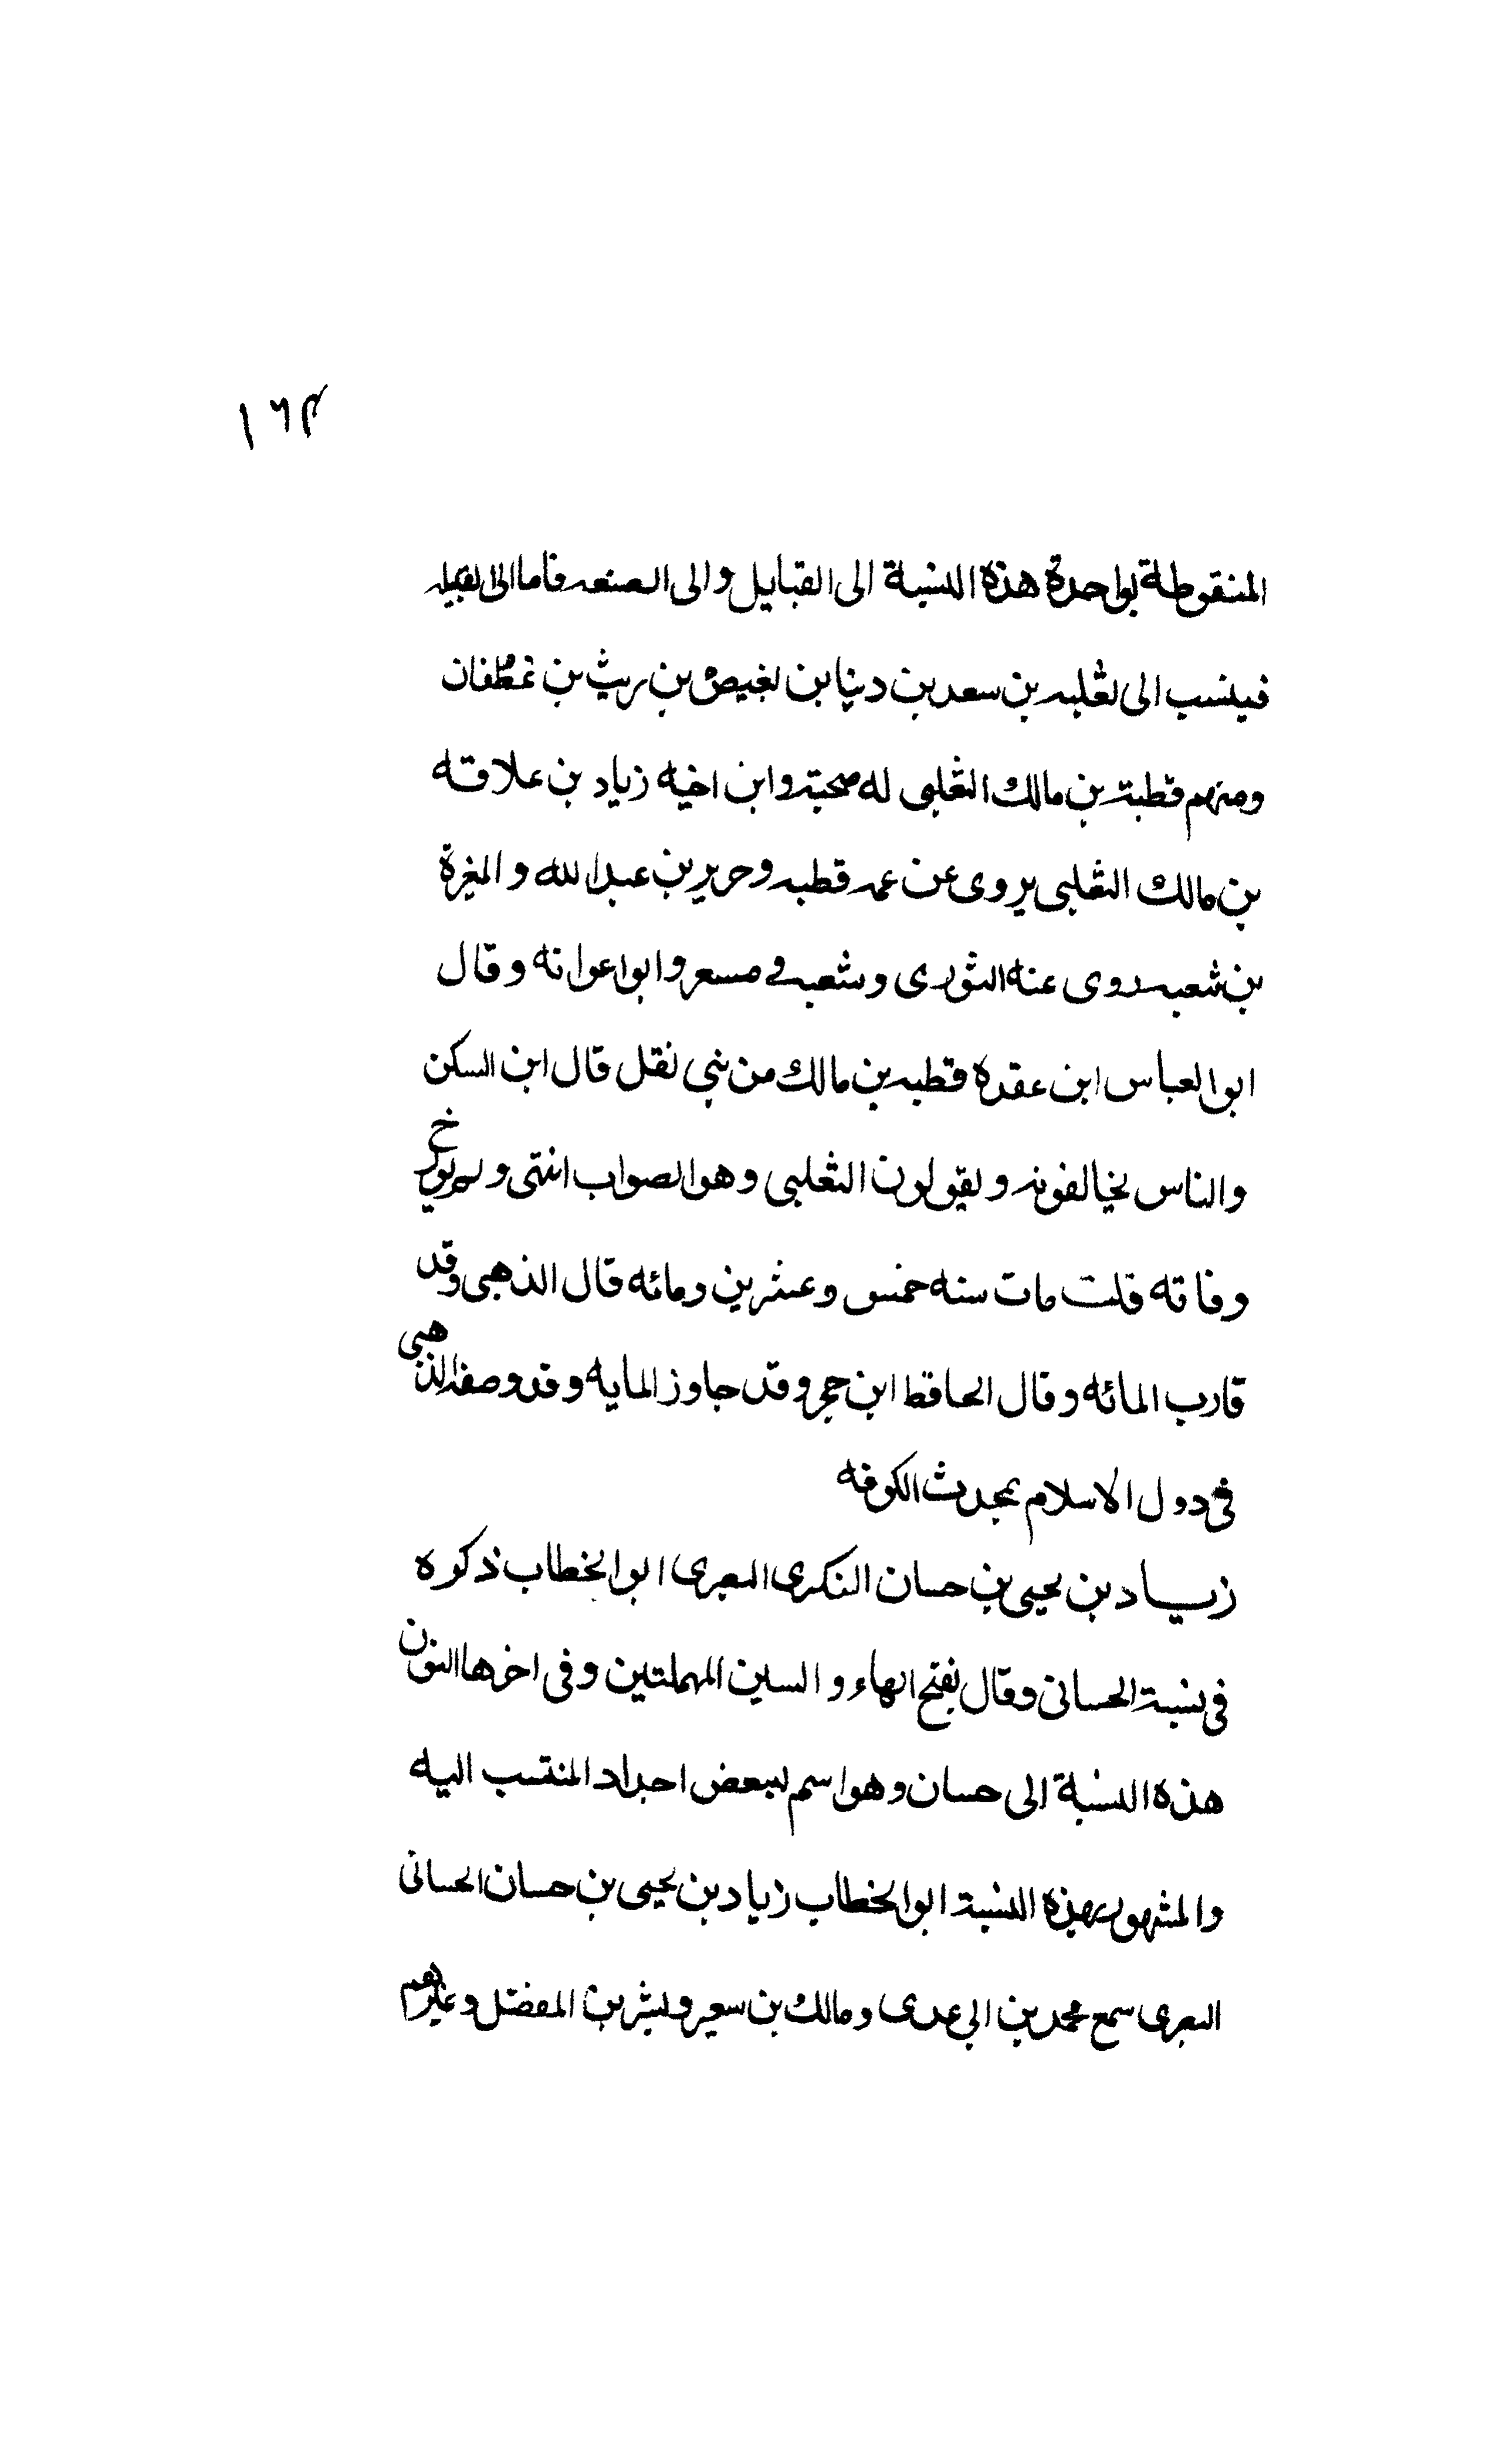 ١٦٤
المنقوطة بواحدة هذه النسبة الى القبايل والى الصنعه فاما الى القبيله
فينسب الى ثعلبه بن سعد بن دنيا بن بغيض بن ريث بن غطفان
ومنهم قطبة بن مالك الثعلبى له صحبة وابن اخيه زياد بن علاقه
بن مالك الثعلبى يروى عن عمه قطبه وحرير بن عبد الله والمغرة
بن شعبه روى عنه الثورى وشعبه ومسعر وابوا عوانه وقال
ابو العباس ابن عقده قطبه بن مالك من بنى نقل قال ابن السكن
والناس يخالفونه ويقولون الثعلبى وهو الصواب انتهى ولم يورخ
وفاته قلت مات سنه خمس وعشرين ومائه قال الذهبى وقد
قارب المائه وقال الحافظ ابن حجر وقد جاوز المايه وقد وصفه الذهبى
فى دول الاسلام بمحدث الكوفه
زيــاد بن يحيى بن حسان النكرى البصرى ابو الخطاب ذكره
فى نسبة الحسانى وقال بفتح الهاء والسين المهملتين وفى اخرها النون
هذه النسبة الى حسان وهو اسم لبعض اجداد المنتسب اليه
والمشهور بهذه النسبة ابو الخطاب زياد بن يحيى بن حسان الحسانى
البصرى سمع محمد بن ابى عدى ومالك بن سعير وبشر بن المفضل وغيرهم